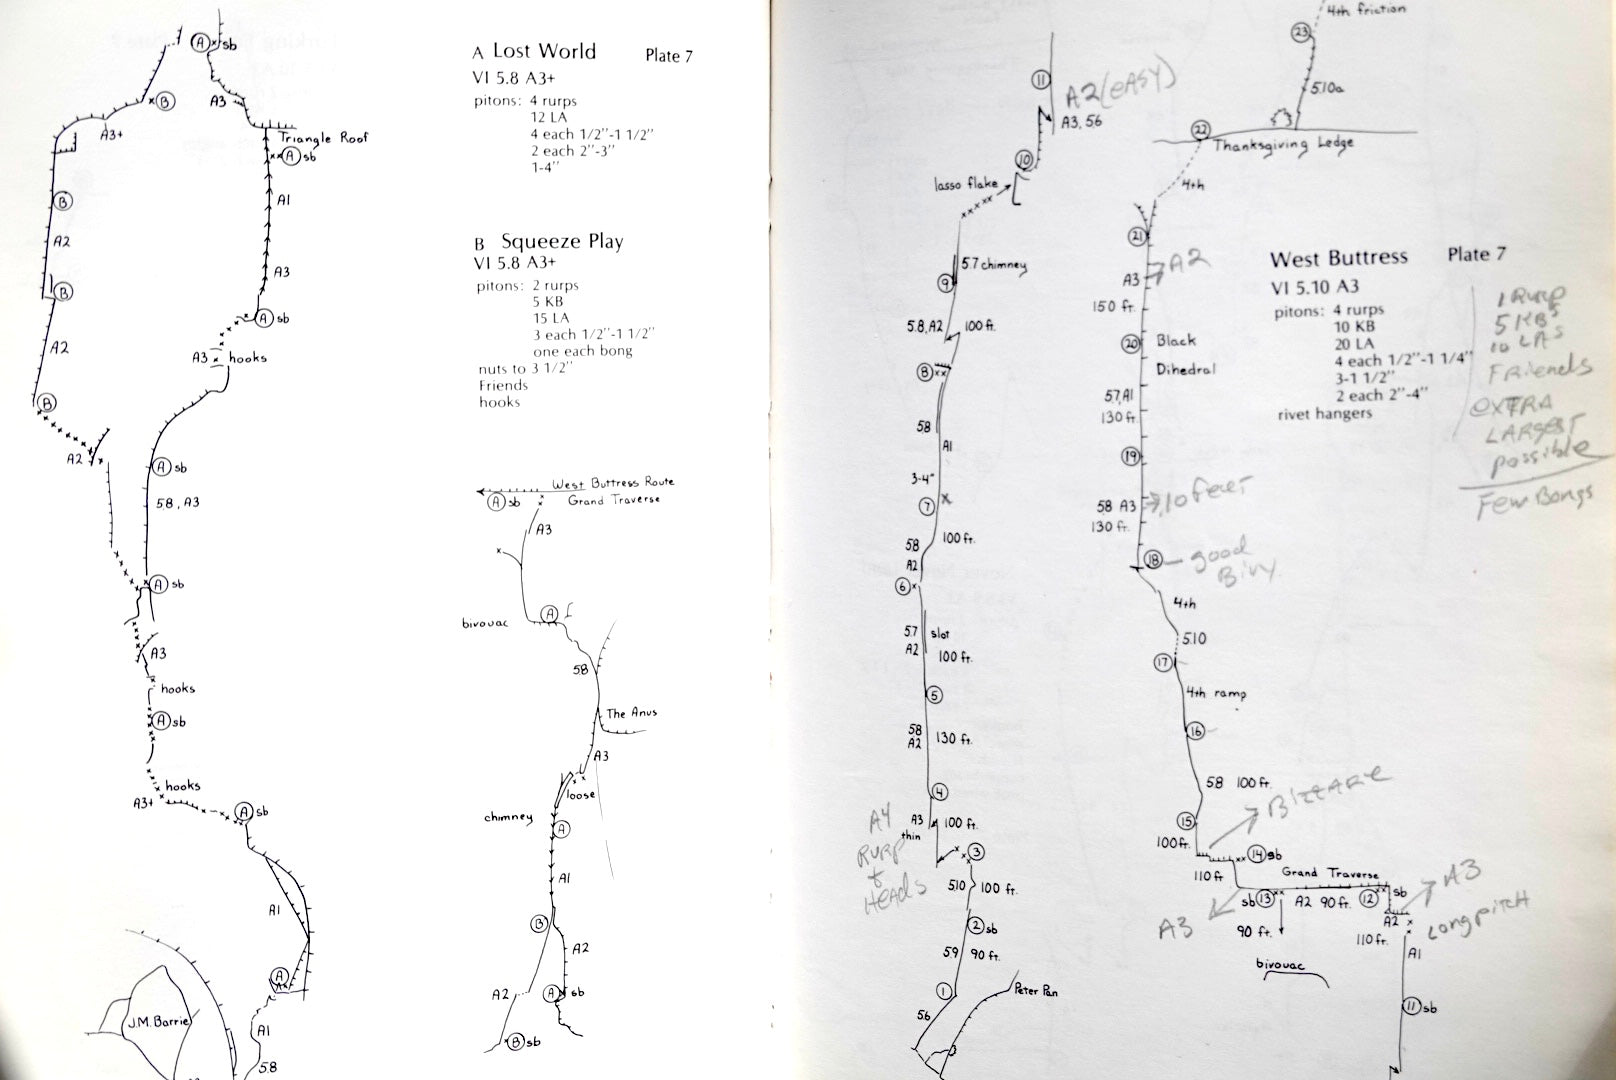 A Lost World Plate 7
VI 5.8 A3+
pitons: 4 rurps
12 LA
4 each 1/2"-1 1/2"
2 each 2"-3"
1-4"
B Squeeze Play
VI 5.8 A3+
pitons: 2 rurps
5 KB
15 LA
3 each 1/2"-1 1/2"
one each bong
nuts to 3 1/2"
Friends
hooks
A sb
B
A3
A3+
Triangle Roof
A sb
B
A1
A2
A3
B
A sb
A2
A3 hooks
B
A2
A sb
5.8, A3
A sb
A3
hooks
A sb
hooks
A3+
A sb
A1
A
J.M. Barrie
A1
5.8
West Buttress Route
A sb
Grand Traverse
A3
A
bivouac
5.8
The Anus
A3
loose
chimney
A
A1
B
A2
A2
A sb
B sb
11
A2 (EASY)
A3, 5.6
10
lasso flake
5.7 chimney
9
5.8, A2 100 ft.
8
5.8
A1
3-4"
7
5.8 100 ft.
A2
6
5.7 slot
A2 100 ft.
5
5.8
A2 130 ft.
4
A3 100 ft.
thin
A4
RURP
+
HEADS
3
5.10 100 ft.
2 sb
5.9 90 ft.
1
Peter Pan
5.6
4th friction
23
5.10a
22
Thanksgiving Ledge
4th
21
A3
A2
150 ft.
20 Black
Dihedral
5.7, A1
130 ft.
19
5.8 A3
10 feet
130 ft.
18
good
Bivy
4th
5.10
17
4th ramp
16
5.8 100 ft.
15
BIZZARE
100 ft.
14 sb
110 ft
Grand Traverse
sb 13
A2 90 ft.
12
sb
A3
A3
90 ft.
A2
Long pitch
110 ft.
A1
bivouac
11 sb
West Buttress Plate 7
VI 5.10 A3
pitons: 4 rurps
10 KB
20 LA
4 each 1/2"-1 1/4"
3-1 1/2"
2 each 2"-4"
rivet hangers
1 RURP
5 KBs
10 LAs
FRiends
eXTRA
LARgesT
possible
Few Bongs